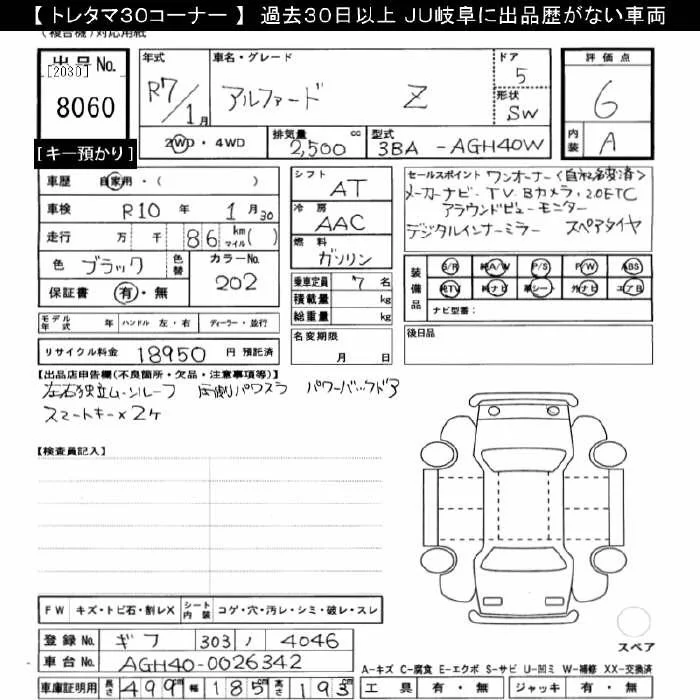 【 トレタマ30コーナー 】 過去30日以上 JU岐阜に出品歴がない車両
(複合機)対応用紙
出品No.
[2030]
8060
[キー預かり]
年式 車名・グレード ドア 評価点
R7/1月 アルファード Z 5 6
形状
SW
2WD・4WD 排気量 2,500 cc 型式 3BA -AGH40W 内装 A
車歴 自家用・( )
車検 R10年 1月30
走行 万 千 86 km マイル( )
色 ブラック 色替 カラーNo. 202
保証書 有・無
シフト AT
冷房 AAC
燃料 ガソリン
乗車定員 7名
積載量 kg
総重量 kg
名変期限
月 日
セールスポイント ワンオーナー(自社名変済)
メーカーナビ・TV.Bカメラ.2.0ETC
アラウンドビューモニター
デジタルインナーミラー スペアタイヤ
装備品 S/R 純A/W P/S P/W ABS
純TV 純ナビ 革シート 外ナビ エアB
ナビ型番:
後日品
モデル年式 年 ハンドル 左・右 ディーラー・並行
リサイクル料金 18950 円 預託済
【出品店申告欄(不良箇所・欠品・注意事項等)】
左右独立ムーンルーフ 両側パワスラ パワーバックドア
スマートキー×2ヶ
【検査員記入】
FW キズ・トビ石・割レX シート内装 コゲ・穴・汚レ・シミ・破レ・スレ
登録No. ギフ 303 ノ 4046
車台No. AGH40-0026342
車庫証明用 長さ 499cm 幅 185cm 高さ 193cm
スペア
A-キズ C-腐食 E-エクボ S-サビ U-凹ミ W-補修 XX-交換済
工具 有・無 ジャッキ 有・無